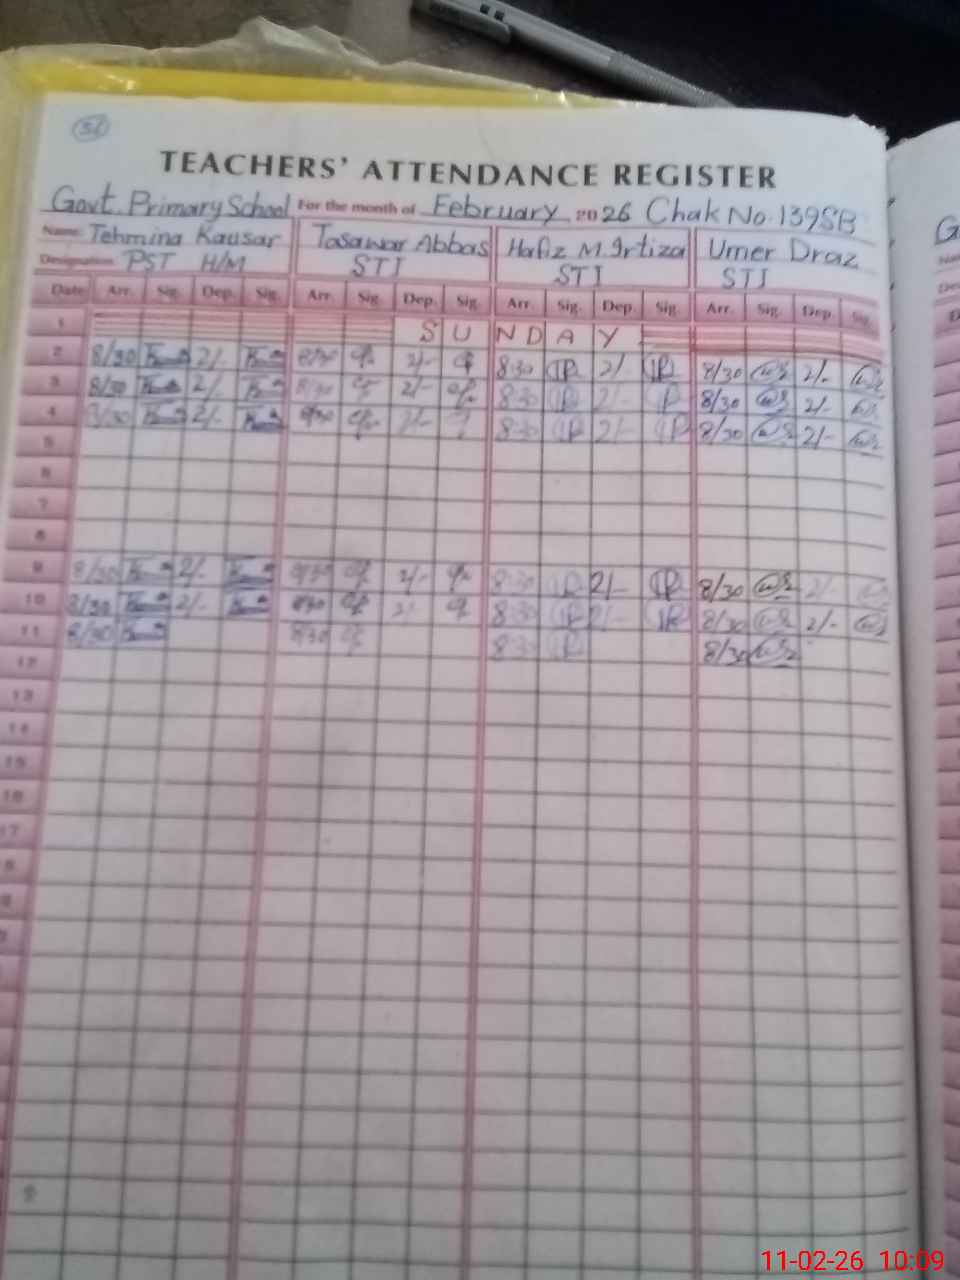 36
TEACHERS' ATTENDANCE REGISTER
Govt. Primary School For the month of February 2026 Chak No. 139SB
Name Tehmina Kausar Tasawar Abbas Hafiz M. Irtiza Umer Draz
Designation PST H/M STI STI STI
Date Arr. Sig. Dep. Sig. Arr. Sig. Dep. Sig. Arr. Sig. Dep. Sig. Arr. Sig. Dep. Sig.
1 SUNDAY
2 8/30 2/- 8/30 2/- 8:30 2/- 8/30 2/-
3 8/30 2/- 8/30 2/- 8:30 2/- 8/30 2/-
4 8/30 2/- 8/30 2/- 8:30 2/- 8/30 2/-
5
6
7
8
9 8/30 2/- 8/30 2/- 8:30 2/- 8/30 2/-
10 8/30 2/- 8/30 2/- 8:30 2/- 8/30 2/-
11 8/30 8/30 8:30 8/30
12
13
14
15
16
17
11-02-26 10:09